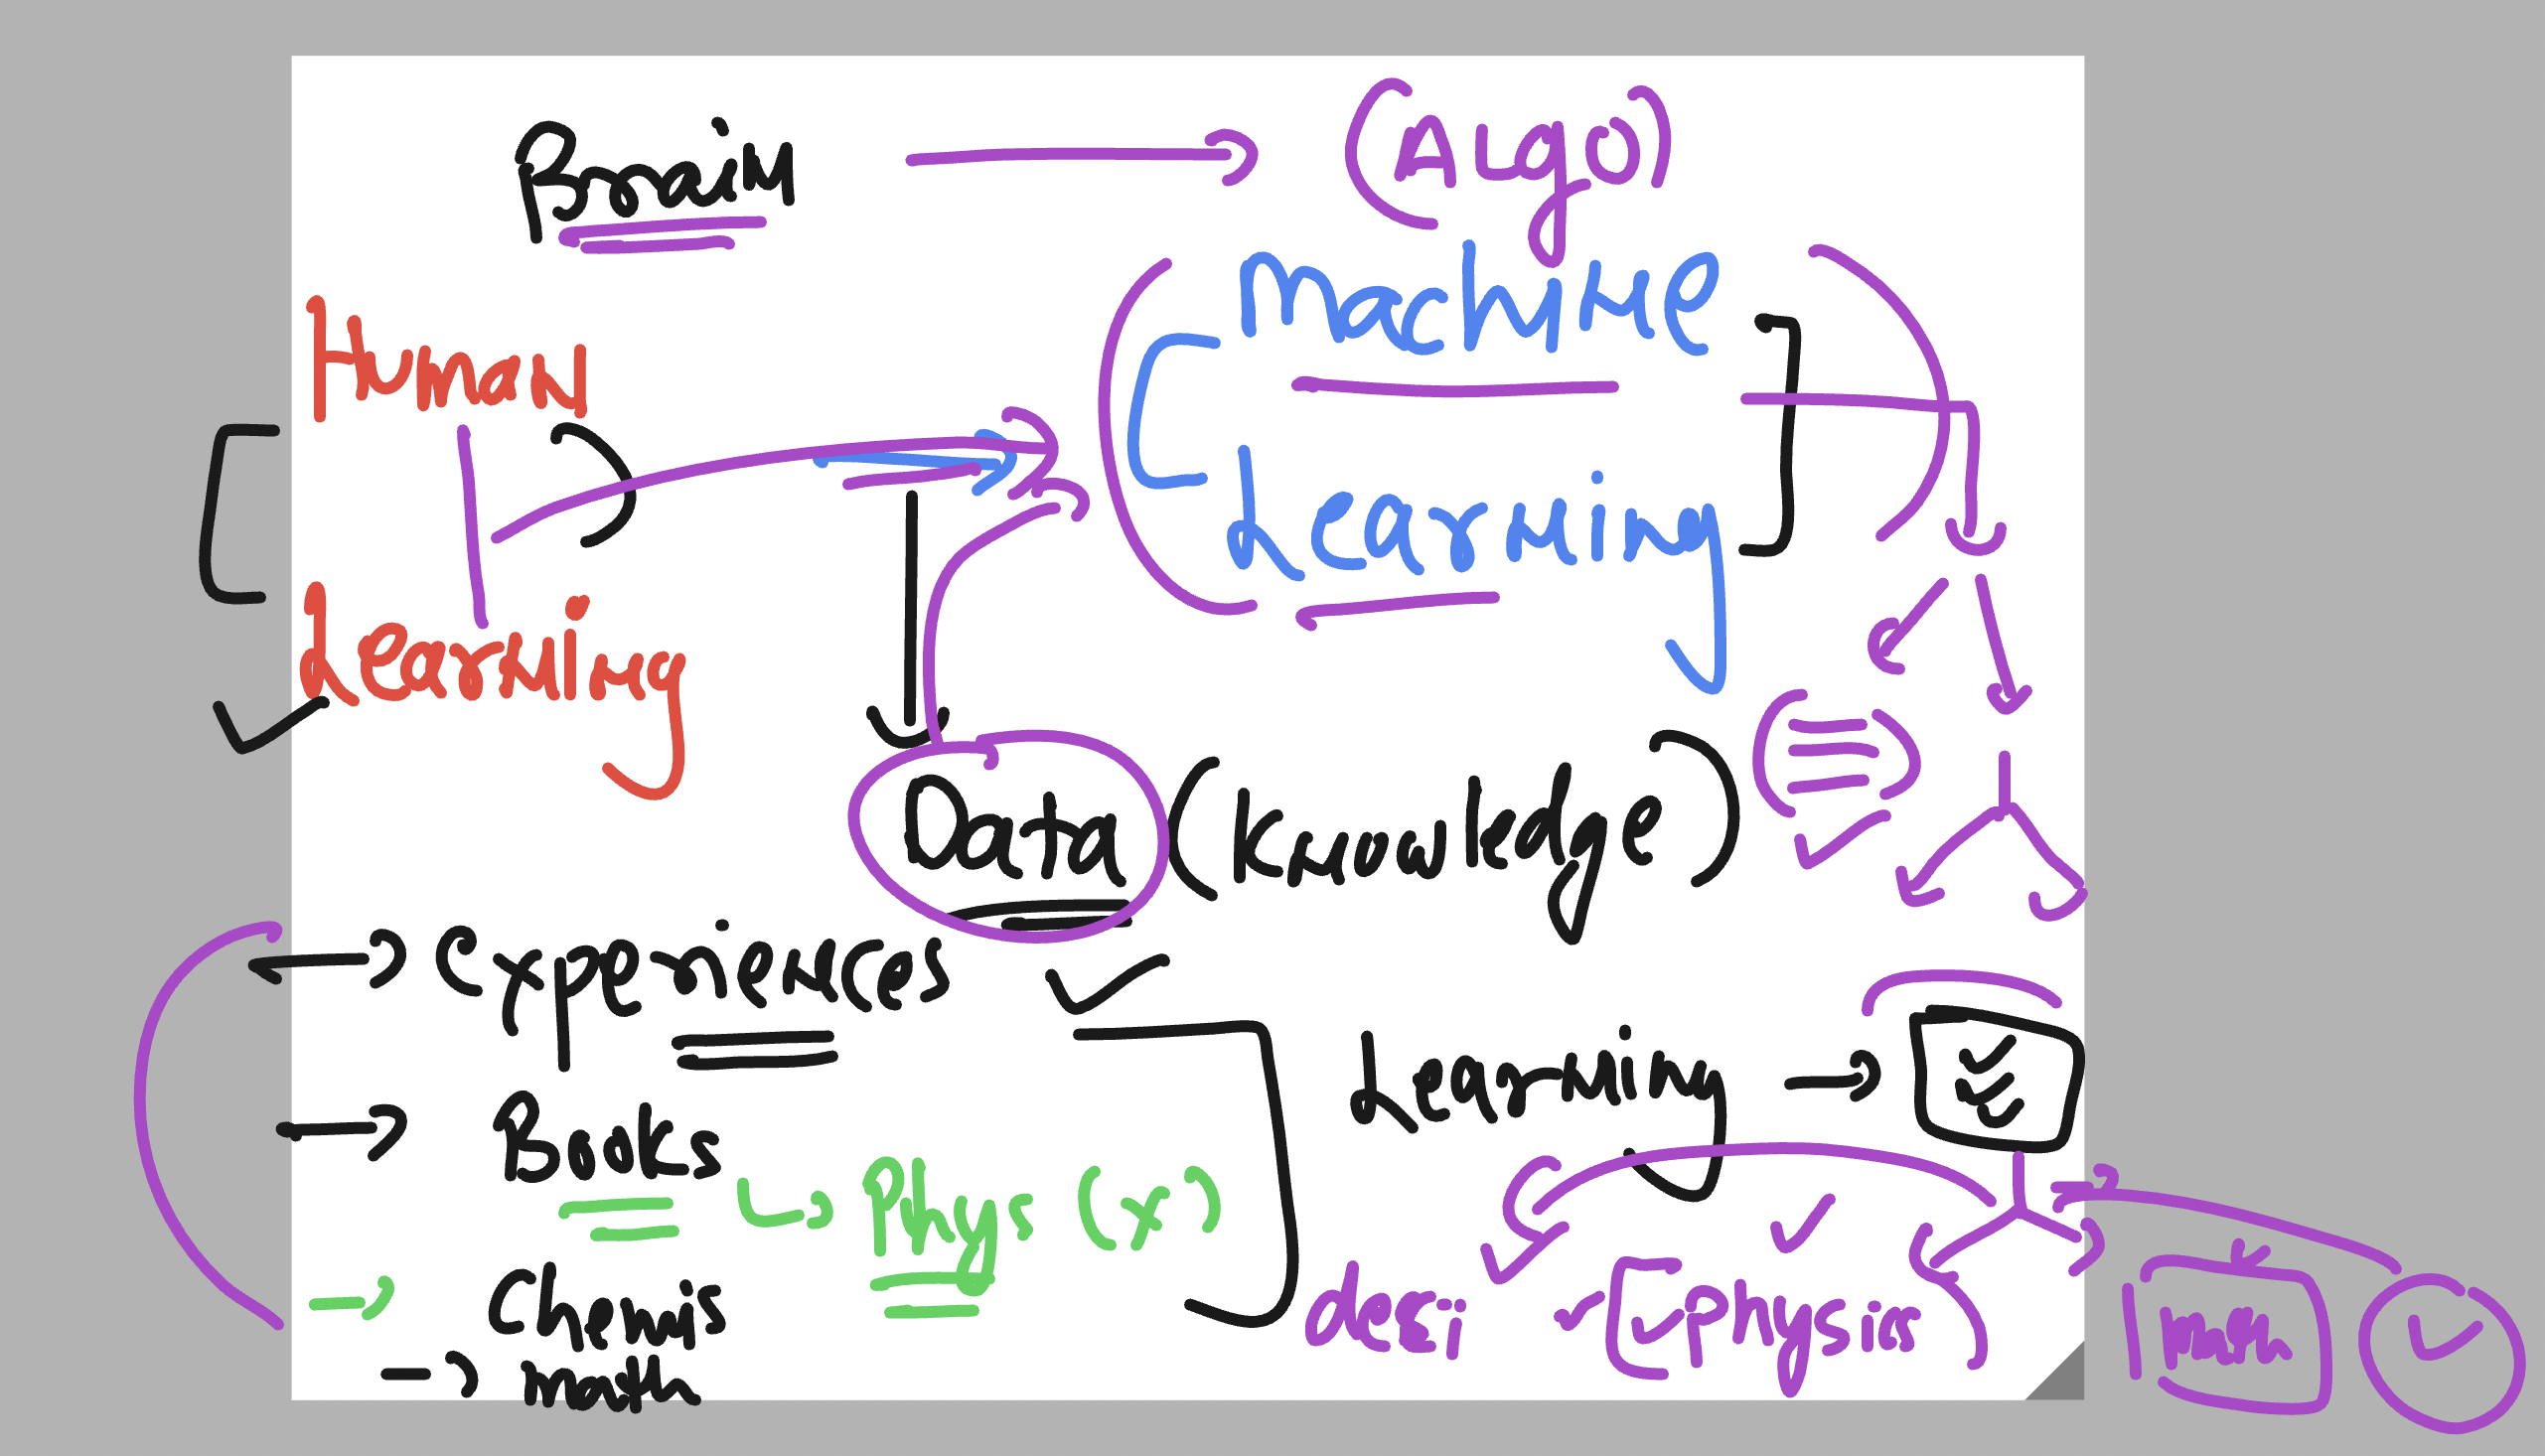 Brain → (ALgO)
Human
Learning
Machine
Learning
Data (Knowledge)
→ Experiences ✓
→ Books ↳ Phys (x)
→ Chemis
→ math
Learning →
✓ [✓Physics
math